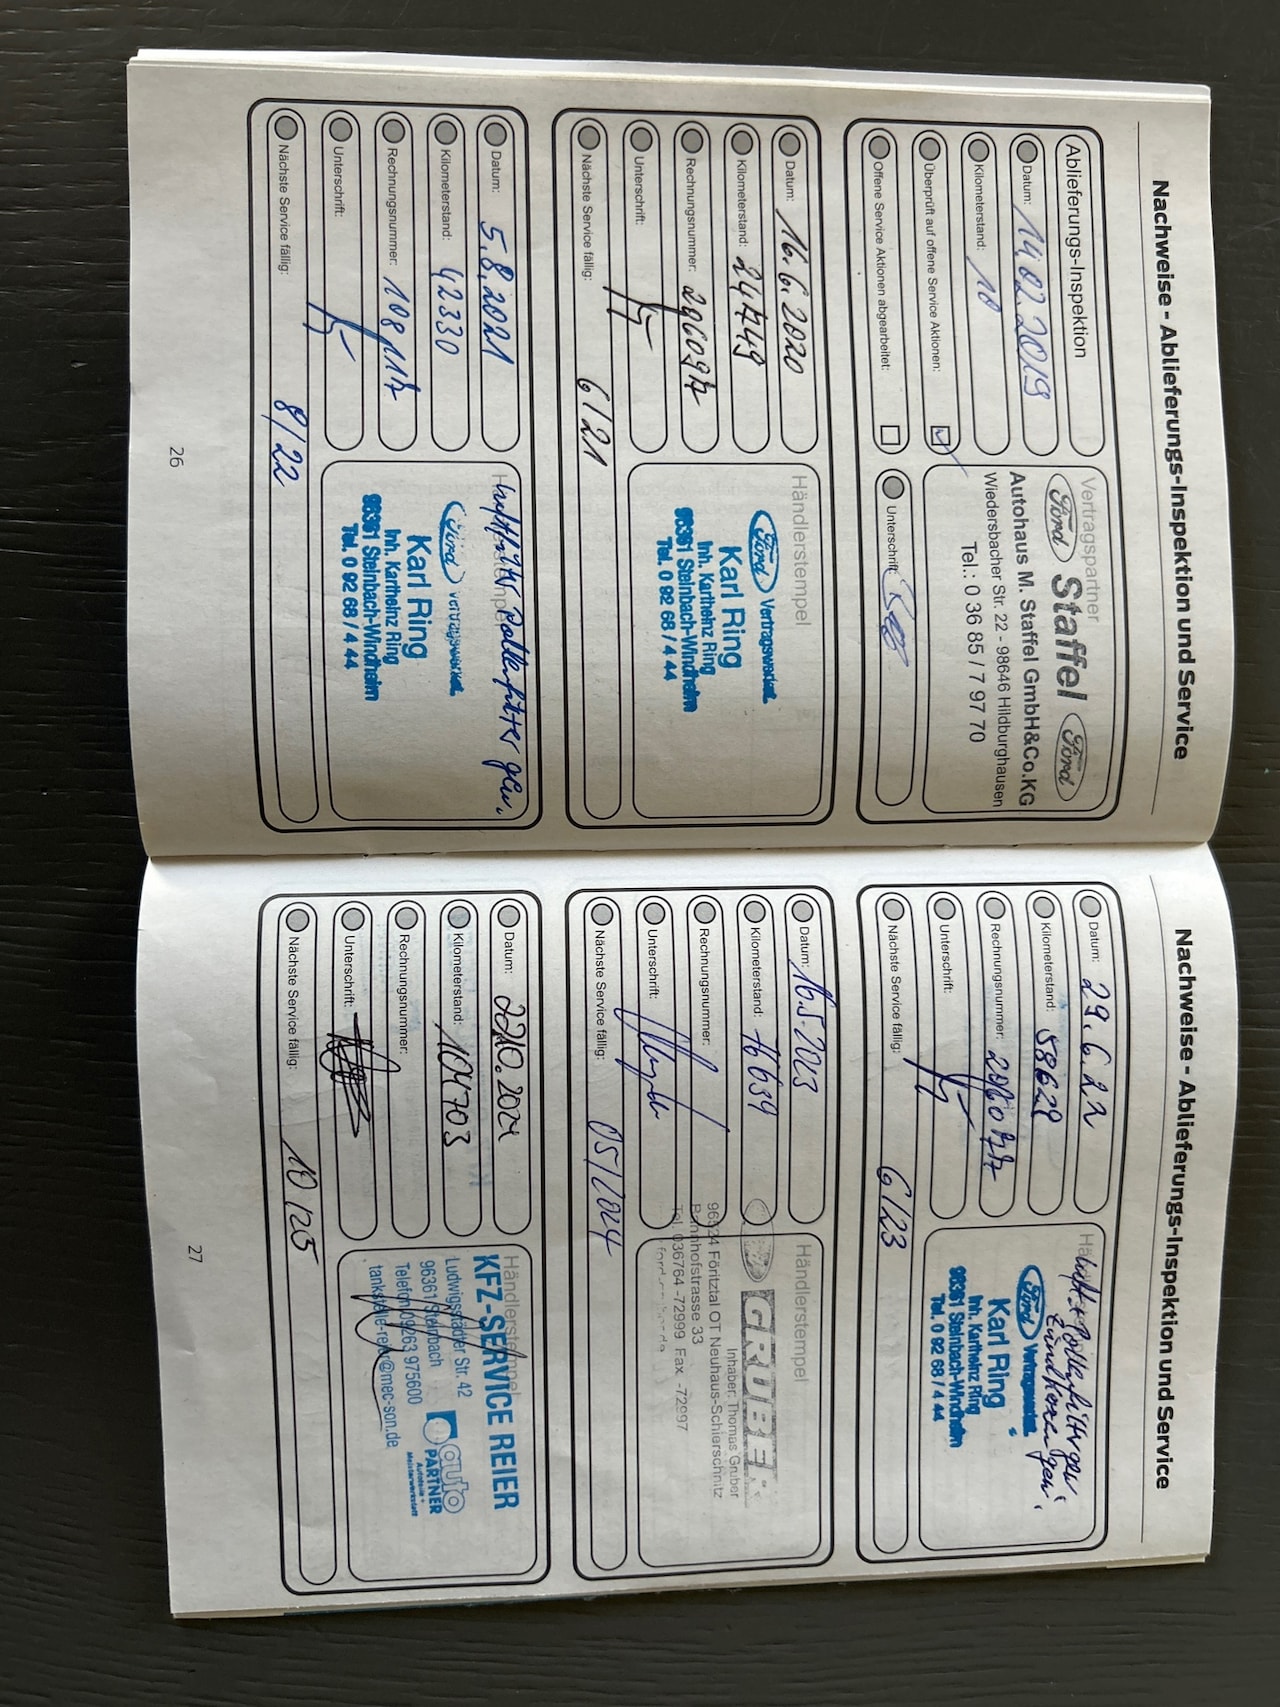 Nachweise - Ablieferungs-Inspektion und Service
Ablieferungs-Inspektion
Datum: 14.02.2019
Kilometerstand: 10
Überprüft auf offene Service Aktionen:
Offene Service Aktionen abgearbeitet:
Vertragspartner
Ford Staffel Ford
Autohaus M. Staffel GmbH&Co.KG
Wiedersbacher Str. 22 - 98646 Hildburghausen
Tel.: 0 36 85 / 7 97 70
Unterschrift:
Datum: 16.6.2020
Kilometerstand: 24749
Rechnungsnummer: 296097
Unterschrift:
Nächste Service fällig: 6/21
Händlerstempel
Ford Vertragswerkst.
Karl Ring
Inh. Karlheinz Ring
96361 Steinbach-Windheim
Tel. 0 92 68 / 4 44
Datum: 5.8.2021
Kilometerstand: 42330
Rechnungsnummer: 108117
Unterschrift:
Nächste Service fällig: 8/22
Pollenfilter gew.
Ford Vertragswerkst.
Karl Ring
Inh. Karlheinz Ring
96361 Steinbach-Windheim
Tel. 0 92 68 / 4 44
26
Nachweise - Ablieferungs-Inspektion und Service
Datum: 29.6.22
Kilometerstand: 58629
Rechnungsnummer:
Unterschrift:
Nächste Service fällig: 6/23
Luft. + Pollenfilter gew.
Zündkerzen gew.
Ford Vertragswerkst.
Karl Ring
Inh. Karlheinz Ring
96361 Steinbach-Windheim
Tel. 0 92 68 / 4 44
Datum: 16.5.2023
Kilometerstand: 76639
Rechnungsnummer:
Unterschrift:
Nächste Service fällig: 05/2024
Händlerstempel
GRUBER
Inhaber: Thomas Gruber
96524 Föritztal OT Neuhaus-Schierschnitz
Bahnhofstrasse 33
Tel. 036764 -72999 Fax -72997
Datum: 22.10.2024
Kilometerstand: 104703
Rechnungsnummer:
Unterschrift:
Nächste Service fällig: 10/25
Händlerstempel
KFZ-SERVICE REIER
Ludwigsstädter Str. 42
96361 Steinbach
Telefon 09263 975600
tankstelle-reier@mec-son.de
auto
PARTNER
Autoteile +
Meisterwerkstatt
27